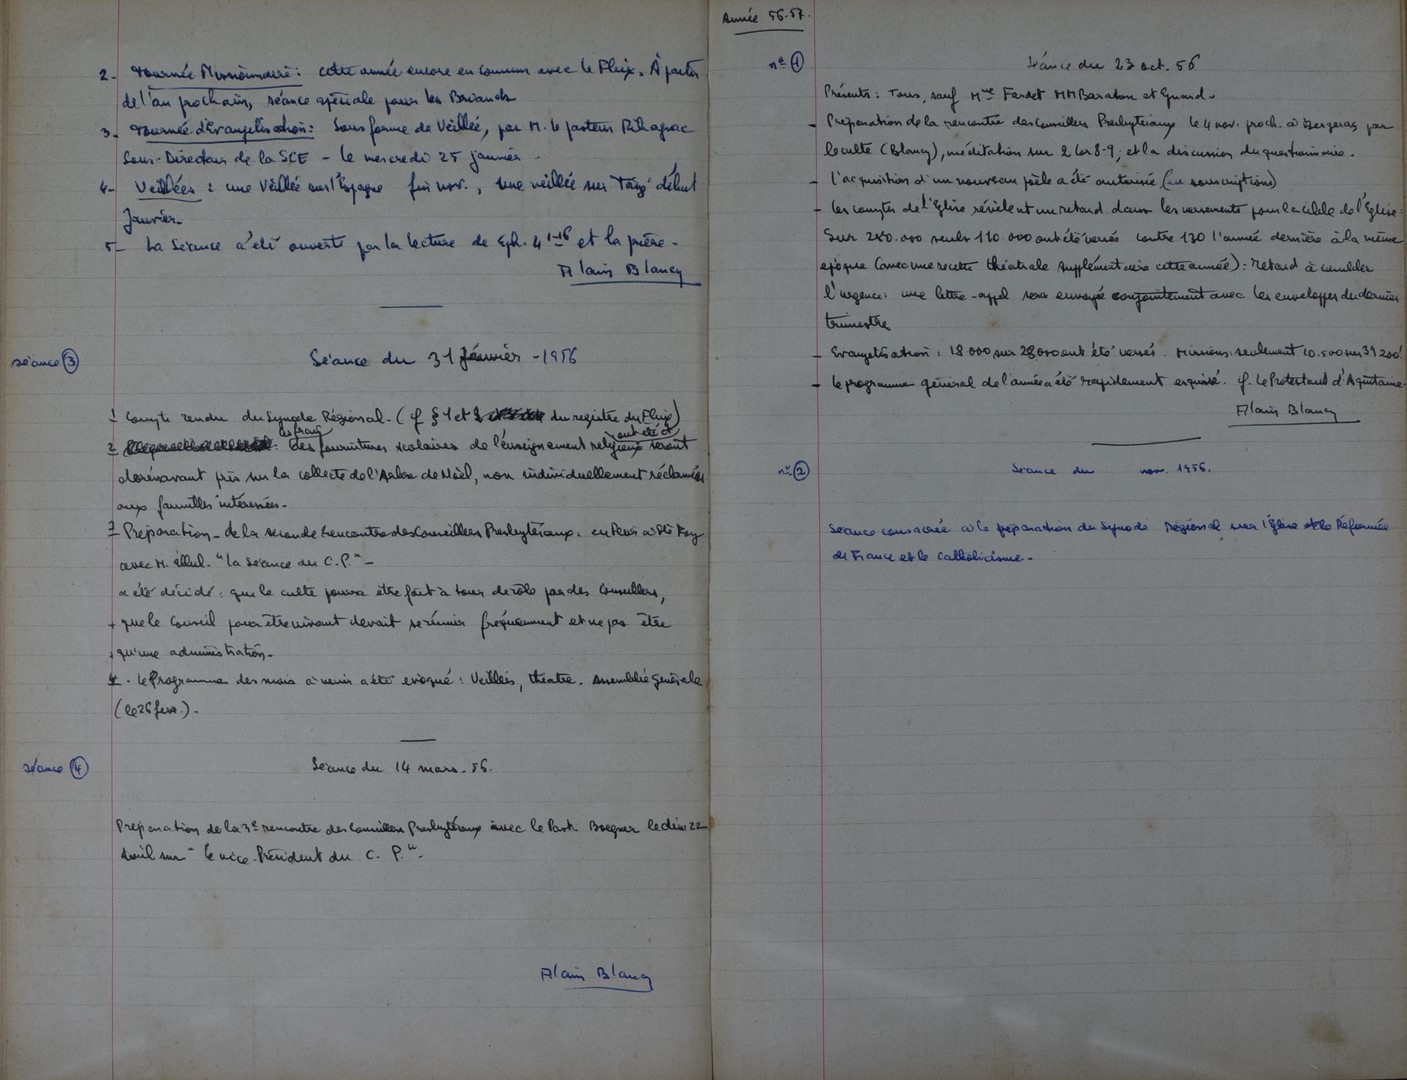 2. Tournée Missionnaire : cette année encore en commun avec le Fleix. À partir
de l'an prochain, séance spéciale pour les Briands
3. Tournée d'Evangélisation : Sous forme de Veillée, par M. le pasteur
Sous-Directeur de la SCE - le mercredi 25 janvier.
4- Veillées : une Veillée sur l'Espagne fin nov., une veillée sur Taizé début
Janvier.
5- La Séance a été ouverte par la lecture de Eph. 4 1-16 et la prière.
Alain Blancy
séance 3
Séance du 31 Janvier - 1956
1 Compte rendu du Synode Régional. (cf § 1 et 2 du registre du Fleix)
les frais ont été et
2 des fournitures scolaires de l'enseignement religieux seront
dorénavant pris sur la collecte de l'Arbre de Noël, non individuellement réclamés
aux familles intéressées.
3 Préparation de la seconde Rencontre des Conseillers Presbytéraux. à Ste Foy
avec M. Ellul. "la séance du C.P." -
a été décidé : que le culte pourra être fait à tour de rôle par des Conseillers,
+ que le Conseil pour être vivant devait se réunir fréquemment et ne pas être
+ qu'une administration.
4 - le Programme des mois à venir a été évoqué : Veillées, théâtre. Assemblée générale
(le 26 fév.).
séance 4
Séance du 14 mars. 56.
Préparation de la 3e rencontre des Conseillers Presbytéraux avec le Past. Boegner le dim 22
avril sur "le vice-Président du C. P.".
Alain Blancy
Année 56-57.
n° 1
Séance du 23 oct. 56
Présents : Tous, sauf Mme Fardet MM Baraton et Guard.
- Préparation de la rencontre des Conseillers Presbytéraux le 4 nov. proch. à Bergerac par
le culte (Blancy), méditation sur 2 Cor 8-9, et la discussion du questionnaire.
- l'acquisition d'un nouveau poêle a été autorisée (souscriptions)
- les comptes de l'Eglise révèlent un retard dans les versements pour la cible de l'Eglise :
Sur 280.000 seuls 110.000 ont été versés contre 130 l'année dernière à la même
époque (avec une recette théâtrale supplémentaire cette année) : retard à combler
d'urgence : une lettre-appel sera envoyée conjointement avec les enveloppes du dernier
trimestre
- Evangélisation : 18 000 sur 28000 ont été versés. Missions : seulement 10.500 sur 39 200 !
- le programme général de l'année a été rapidement esquissé. cf. le Protestant d'Aquitaine.
Alain Blancy
n° 2
Séance du nov. 1956.
Séance consacrée à la préparation du Synode Régional sur l'Église Réformée
de France et le catholicisme.